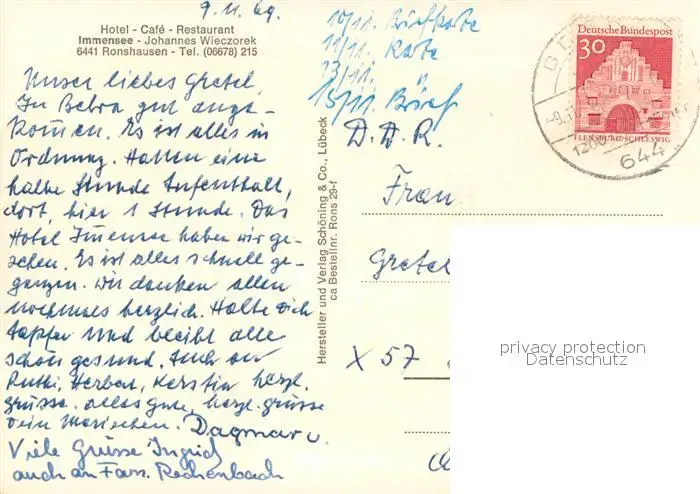 9.11.69
Hotel - Café - Restaurant
Immensee - Johannes Wieczorek
6441 Ronshausen - Tel. (06678) 215
Unser liebes Gretel,
In Bebra gut ange-
komen. Es ist alles in
Ordnung. Hatten eine
halbe Stunde Aufenthalt,
dort, hier 1 Stunde. Das
Hotel Imensee haben wir ge-
sehen. Es ist alles schnell ge-
gangen. Wir danken allen
nochmals herzlich. Halte dich
tapfer und bleibt alle
schön gesund. Auch an
Ruthi, Herbert, Kerstin herzl.
grüsse. alles gute, herzl. grüsse
Dein Mariechen. Dagmar u.
Viele Grüsse Ingrid
auch an Fam. Rechenbach
Hersteller und Verlag Schöning & Co., Lübeck
ca Bestellnr. Rons 29-f
10/11. Briefkarte
11/11. Karte
13/11. "
15/11. Brief
D.D.R.
Frau
Gretel
X 57
Deutsche Bundespost
30
FLENSBURG/SCHLESWIG
644
privacy protection
Datenschutz